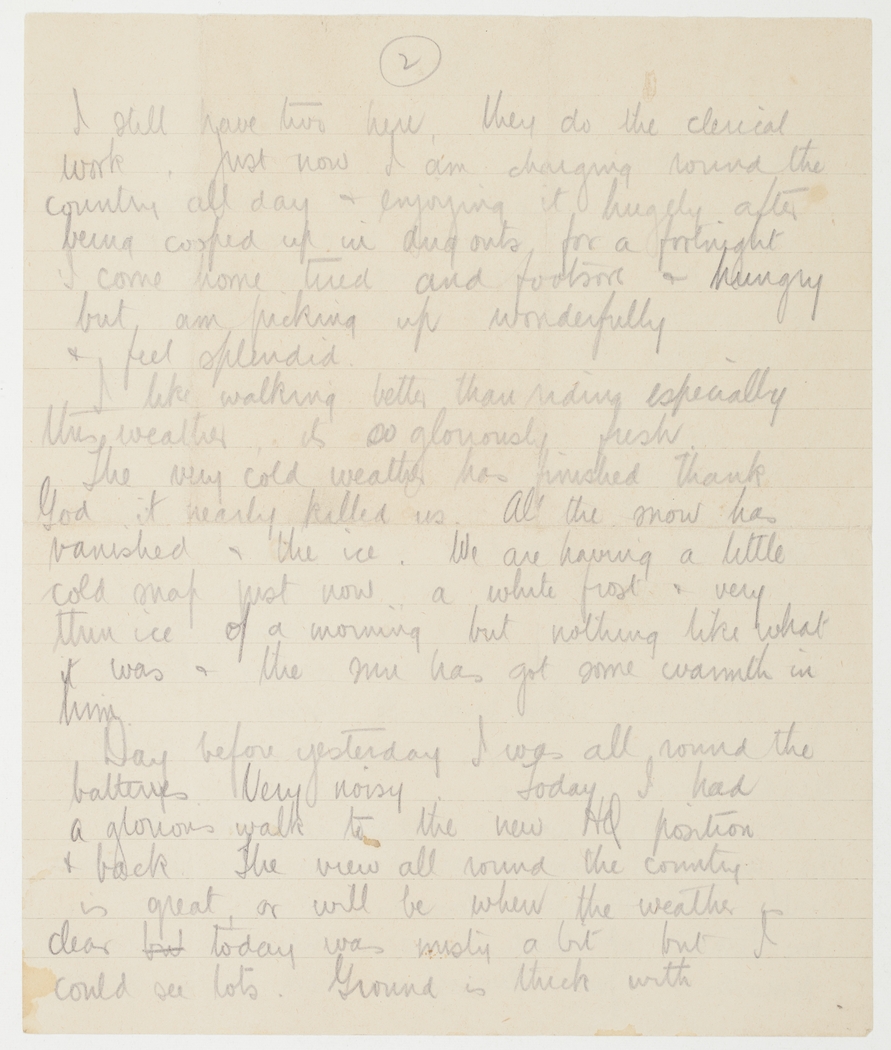 2
I still have two here, they do the clerical
work. Just now I am charging round the
country all day & enjoying it hugely after
being cooped up in dug outs, for a fortnight
I come home tired and footsore & hungry
but am picking up wonderfully
& feel splendid.
I like walking better than riding especially
this weather, its so gloriously fresh.
The very cold weather has finished thank
God it nearly killed us. All the snow has
vanished & the ice. We are having a little
cold snap just now a white frost & very
thin ice of a morning but nothing like what
it was & the sun has got some warmth in
him.
Day before yesterday I was all round the
batterys Very noisy. Today I had
a glorious walk to the new HQ position
& back. The view all round the country
is great, or will be when the weather is
clear but today was misty a bit but I
could see lots. Ground is thick with